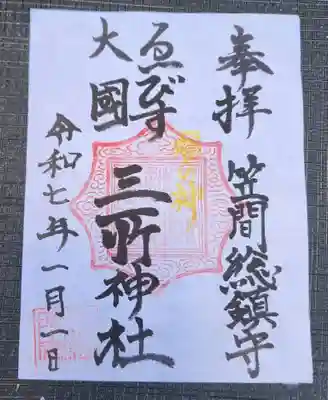 奉拝
笠間総鎮守
ゑびす
大國
三所神社
令和七年一月一日